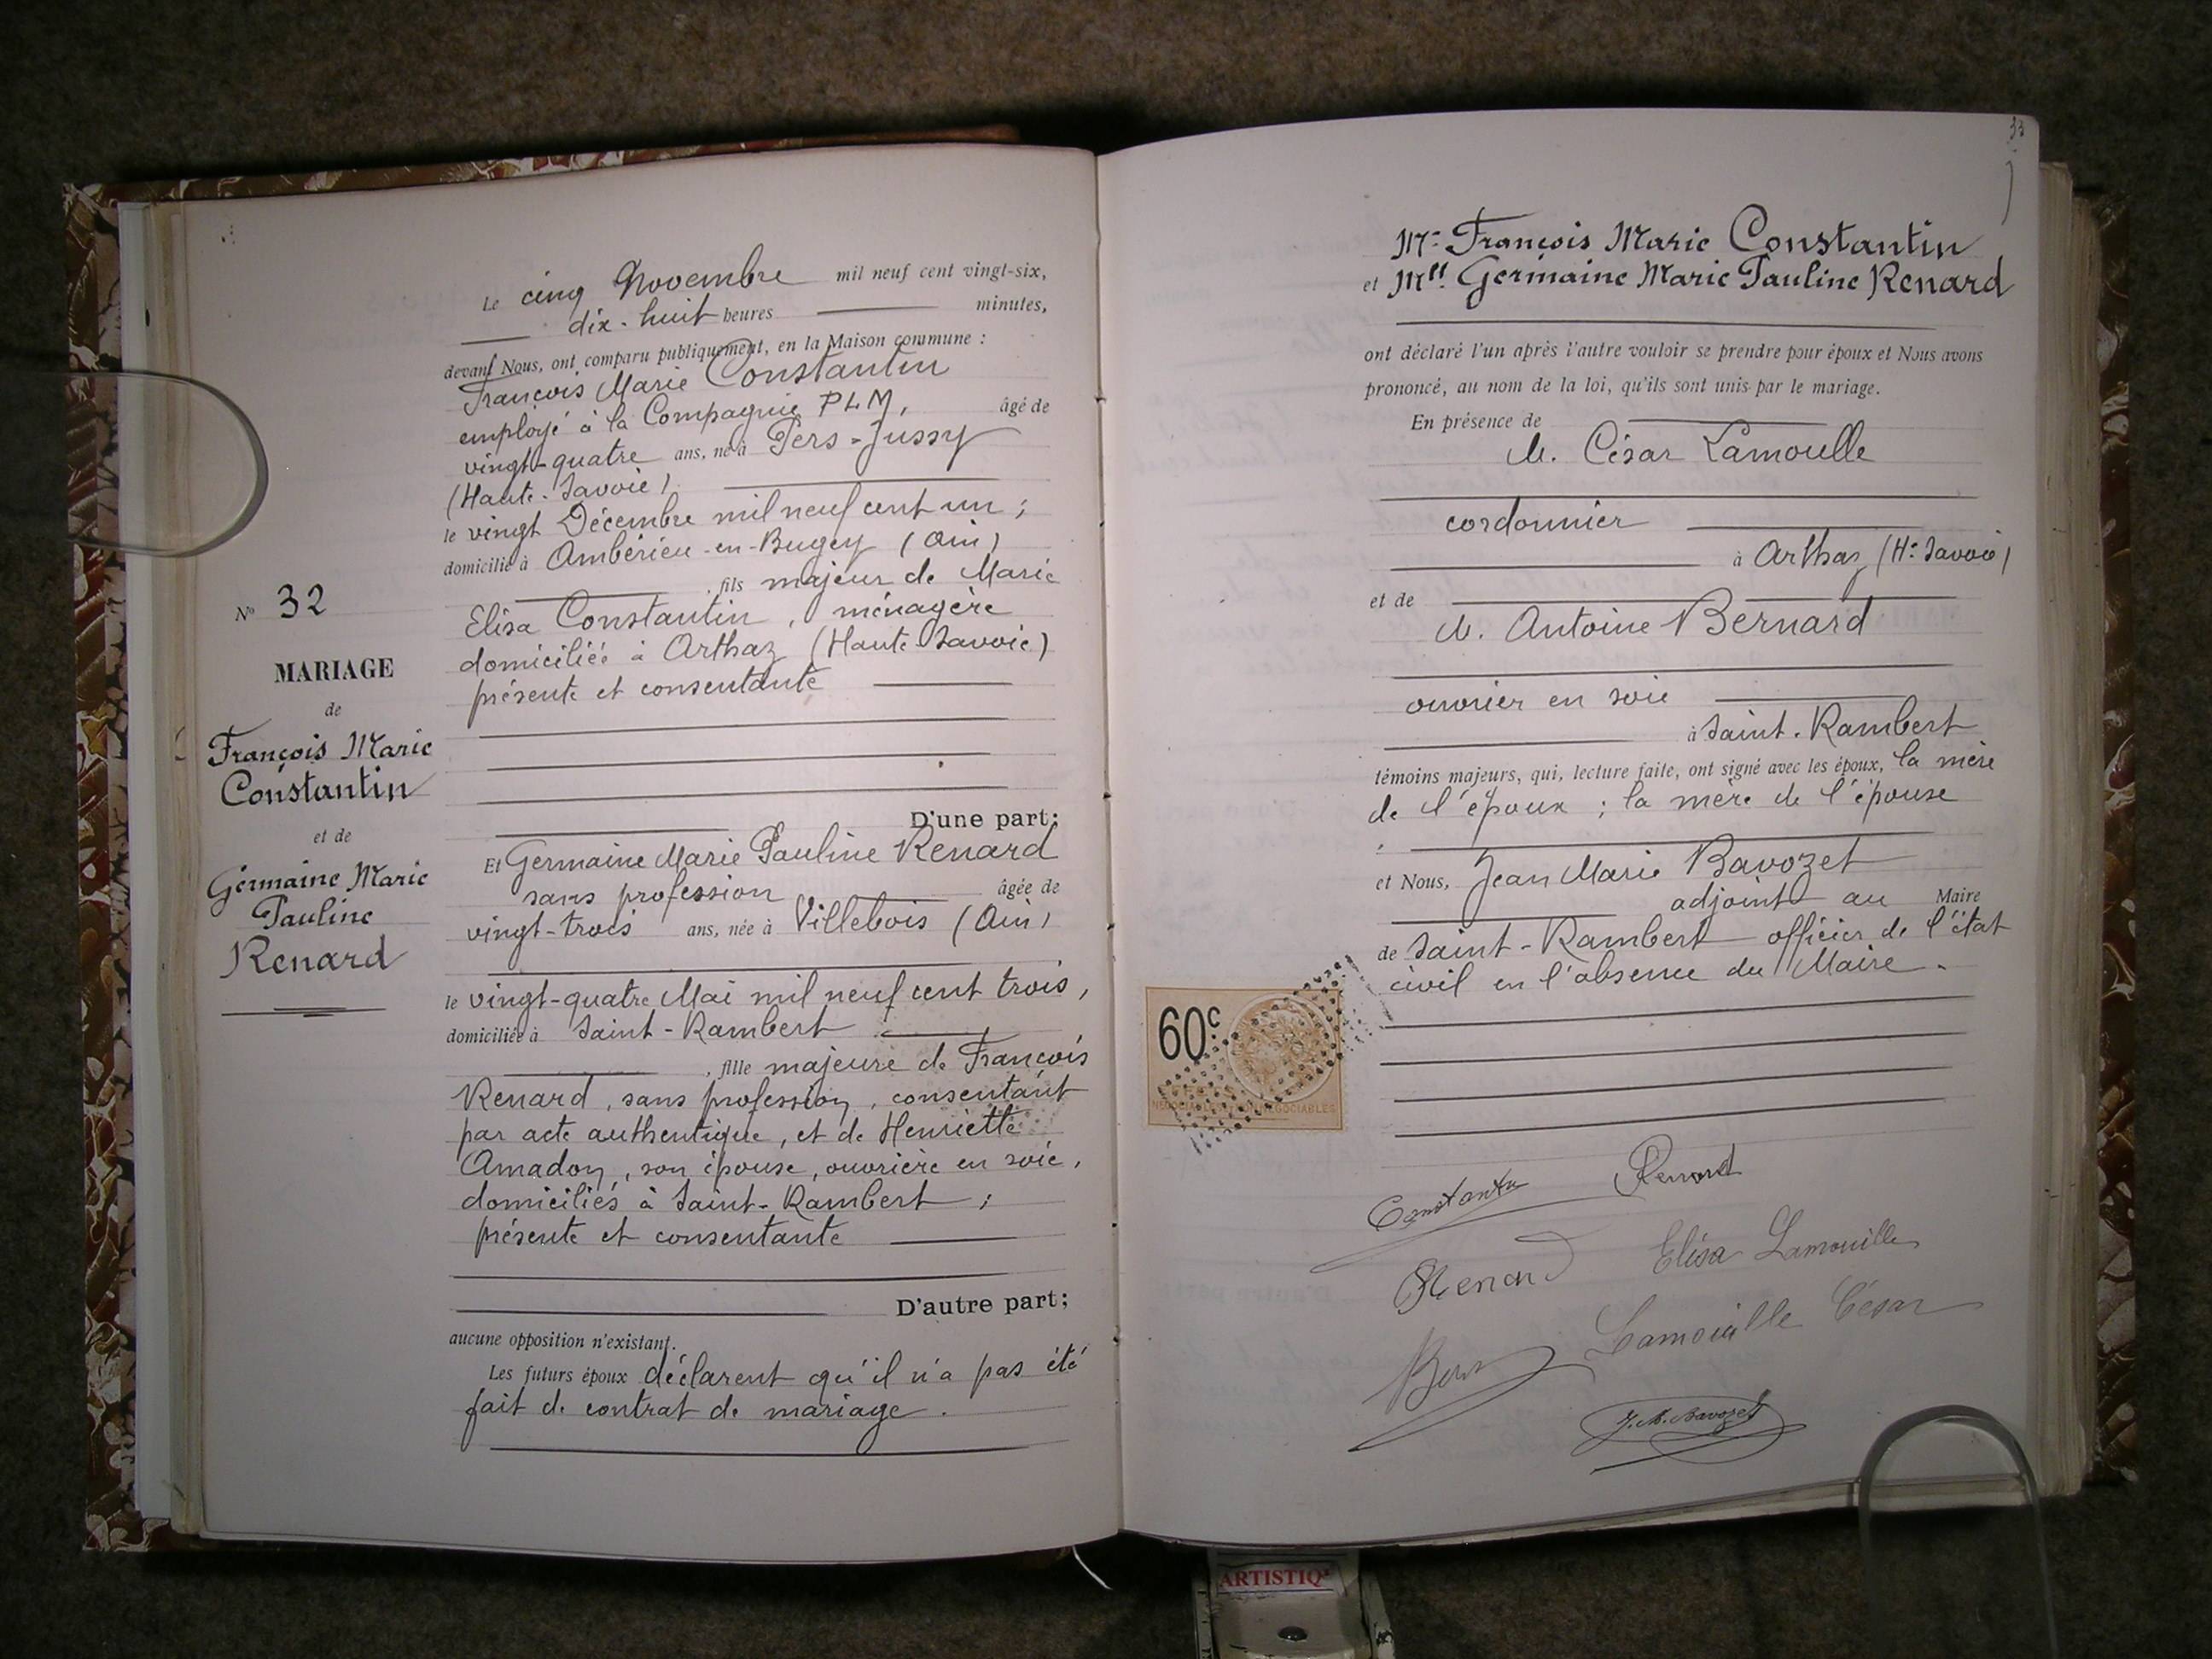 Le cinq Novembre mil neuf cent vingt-six,
dix-huit heures minutes,
devant Nous, ont comparu publiquement, en la Maison commune :
François Marie Constantin
employé à la Compagnie PLM, âgé de
vingt-quatre ans, né à Pers-Jussy
(Haute-Savoie)
le vingt Décembre mil neuf cent un ;
domicilié à Ambérieu-en-Bugey (Ain)
, fils majeur de Marie
Elisa Constantin, ménagère
domiciliée à Arthaz (Haute Savoie)
présente et consentante
D'une part;
N° 32
MARIAGE
de
François Marie
Constantin
et de
Germaine Marie
Pauline
Renard
Et Germaine Marie Pauline Renard
sans profession âgée de
vingt-trois ans, née à Villebois (Ain)
le vingt-quatre Mai mil neuf cent trois,
domiciliée à Saint-Rambert
, fille majeure de François
Renard, sans profession, consentant
par acte authentique, et de Henriette
Amadon, son épouse, ouvrière en soie,
domiciliés à Saint-Rambert ;
présente et consentante
D'autre part;
aucune opposition n'existant.
Les futurs époux déclarent qu'il n'a pas été
fait de contrat de mariage.
33
Mr François Marie Constantin
et Mlle Germaine Marie Pauline Renard
ont déclaré l'un après l'autre vouloir se prendre pour époux et Nous avons
prononcé, au nom de la loi, qu'ils sont unis par le mariage.
En présence de
M. César Lamoulle
cordonnier
à Arthaz (Hte Savoie)
et de
M. Antoine Bernard
ouvrier en soie
à Saint-Rambert
témoins majeurs, qui, lecture faite, ont signé avec les époux, la mère
de l'époux ; la mère de l'épouse
et Nous, Jean Marie Bavozet
adjoint au Maire
de Saint-Rambert officier de l'état
civil en l'absence du Maire.
60c
Constantin Renard
Renard Elisa Lamouille
Lamouille César
J. M. Bavozet
ARTISTIQ